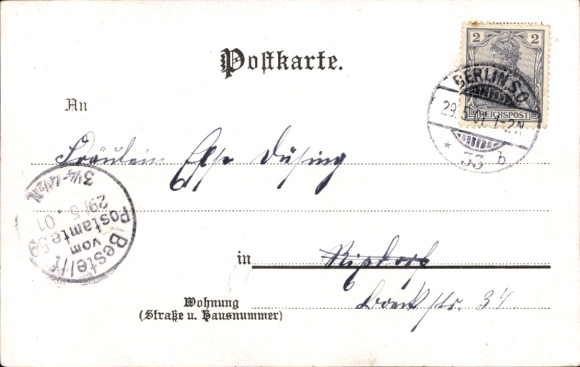 Postkarte.
2 2
REICHSPOST
BERLIN S.O.
29.5.01. 1-2N
* 33 b
An
Fräulein Else Düsing
Bestellt
vom
Postamte 59
29/5.01
3¼-4½N.
in Rixdorf
Wohnung
(Straße u. Hausnummer)
str. 37